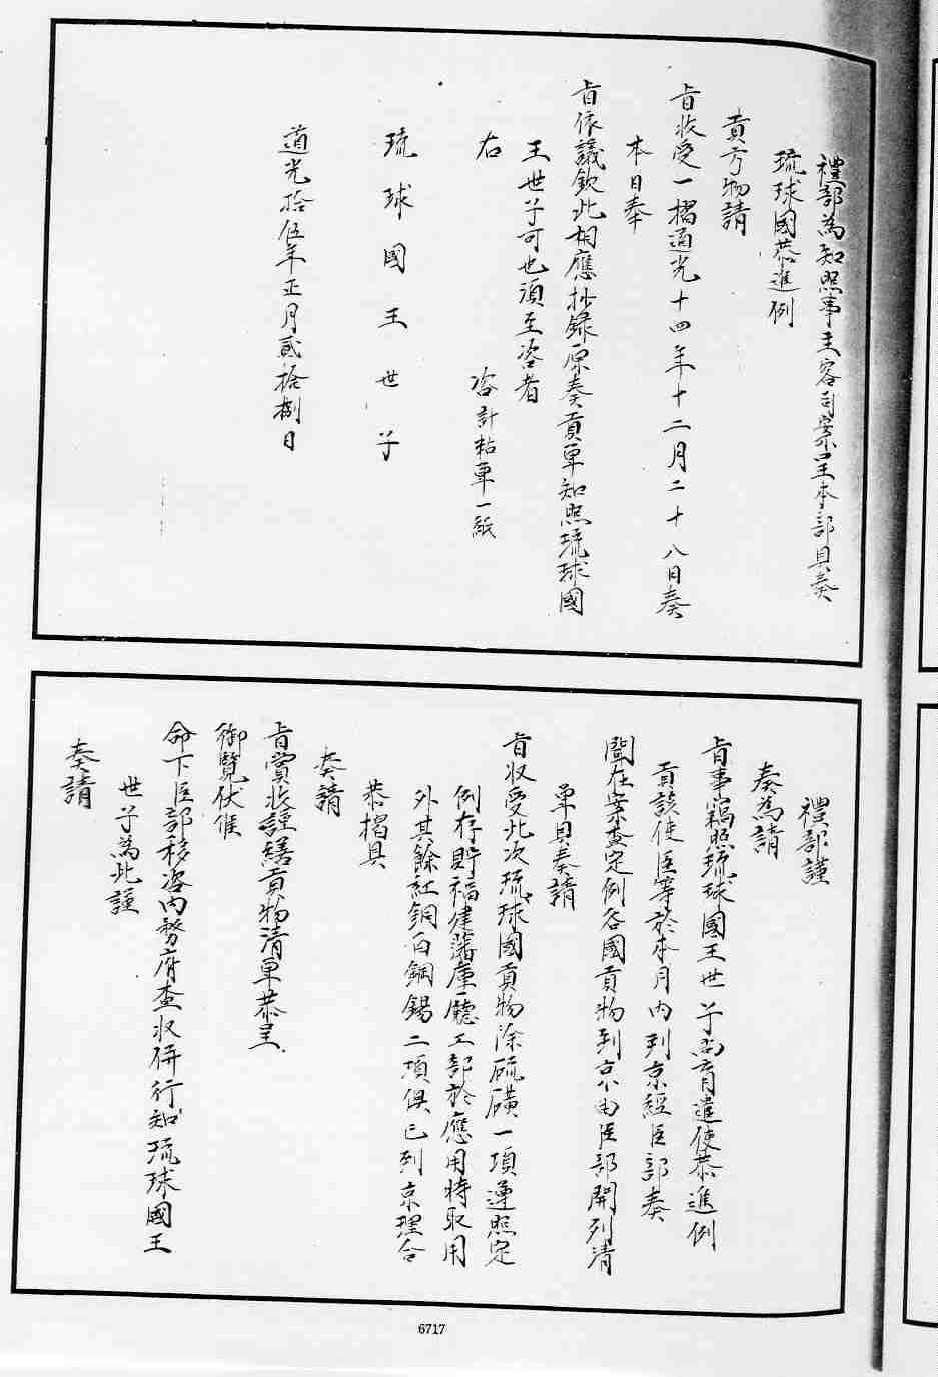 禮部為知照事主客司案呈本部具奏
琉球國恭進例
貢方物請
旨收受一摺道光十四年十二月二十八日奏
本日奉
旨依議欽此相應抄錄原奏貢單知照琉球國
王世子可也須至咨者
右　咨計粘單一紙
琉球國王世子
道光拾伍年正月貳拾捌日
禮部謹
奏為請
旨事竊照琉球國王世子尚育遣使恭進例
貢該使臣等於本月內到京經臣部奏
聞在案查定例各國貢物到京由臣部開列清
單具奏請
旨收受此次琉球國貢物除硫磺一項遵照定
例存貯福建藩庫聽工部於應用時取用
外其餘紅銅白鋼錫二項俱已到京理合
恭摺具
奏請
旨賞收謹繕貢物清單恭呈
御覽伏候
命下臣部移咨內務府查收併行知琉球國王
世子為此謹
奏請
6717